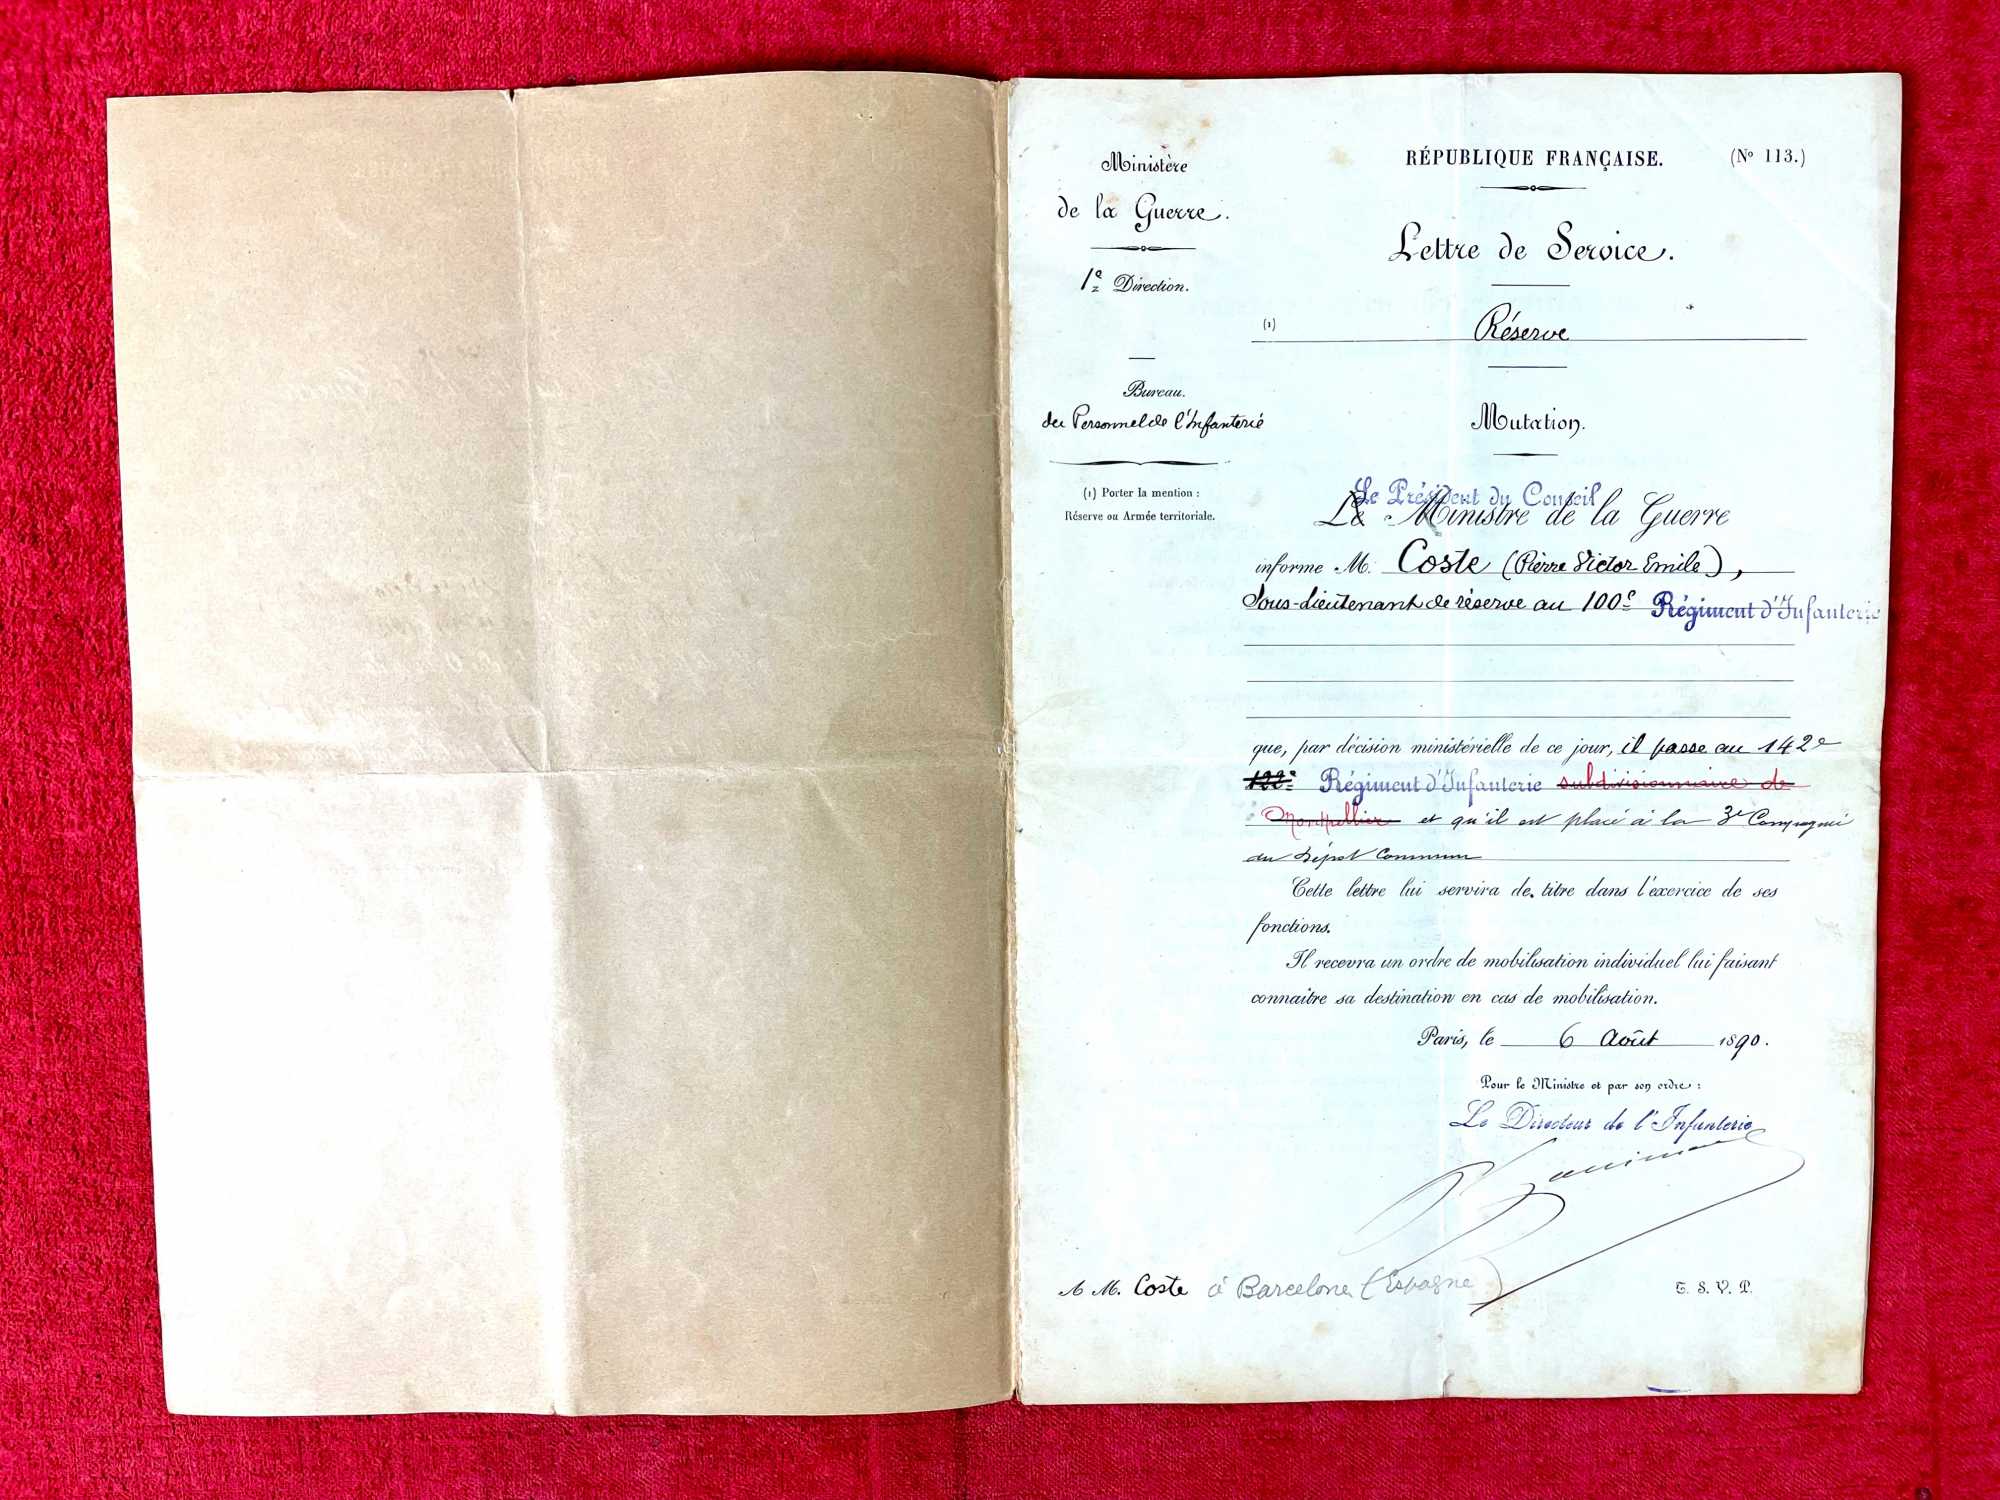 Ministère
de la Guerre.
1e Direction.
Bureau.
du Personnel de l'Infanterie
(1) Porter la mention :
Réserve ou Armée territoriale.
RÉPUBLIQUE FRANÇAISE. (No 113.)
Lettre de Service.
(1) Réserve
Mutation.
Le Président du Conseil
Le Ministre de la Guerre
informe M. Coste (Pierre Victor Emile),
Sous-Lieutenant de réserve au 100e Régiment d'Infanterie
que, par décision ministérielle de ce jour, il passe au 142e
122e Régiment d'Infanterie subdivisionnaire de
Montpellier et qu'il est placé à la 3e Compagnie
du Dépôt Commun
Cette lettre lui servira de titre dans l'exercice de ses
fonctions.
Il recevra un ordre de mobilisation individuel lui faisant
connaître sa destination en cas de mobilisation.
Paris, le 6 Août 1890.
Pour le Ministre et par son ordre :
Le Directeur de l'Infanterie
A M. Coste à Barcelone (Espagne)
T. S. V. P.